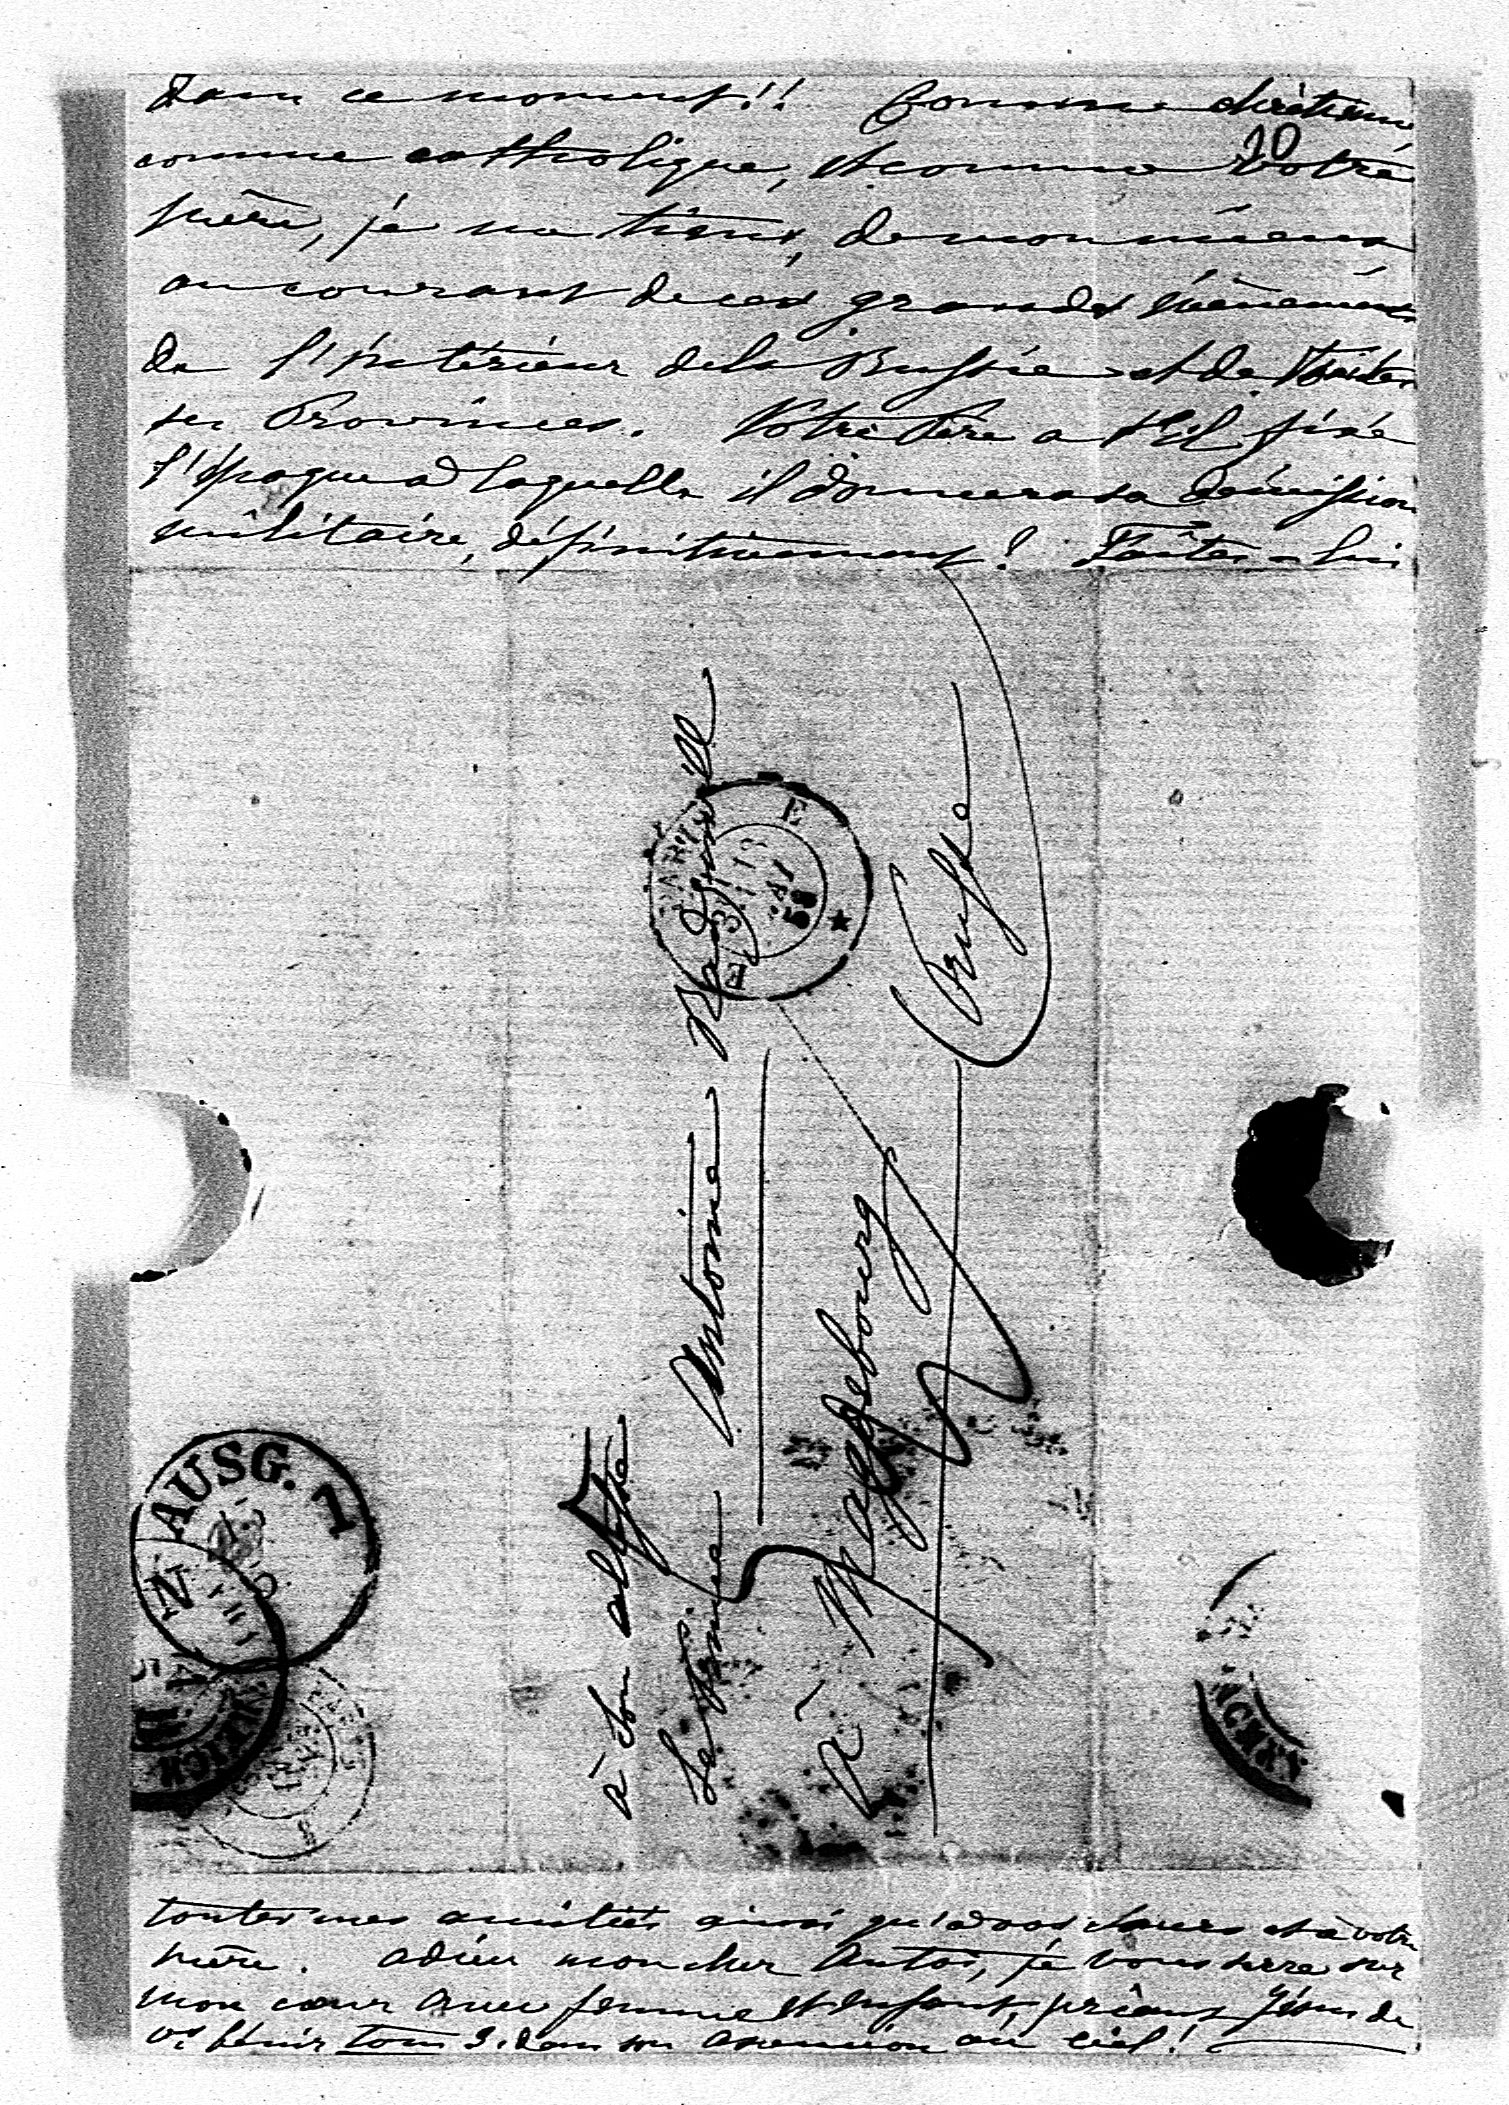 dans ce moment!! Comme chrétienne
10
comme catholique, et comme votre
mère, je me tiens, de mon mieux
au courant de ces grands évènements
de l'intérieur de la Russie et de toutes
ses Provinces. Votre Père a t'il fixé
l'époque à laquelle il donnera sa démission
militaire, définitivement? Faites-lui
à Son altesse
Le Prince Antoine Radziwill
à Magdebourg
Prusse
PARIS
E E
58
AUSG. 1
N
toutes mes amitiés ainsi qu'à vos soeurs et à votre
mère. adieu mon cher Antoi, je vous serre sur
mon coeur avec femme et enfant, priant Jésus de
vs bénir tous 3, dans son ascension au ciel!